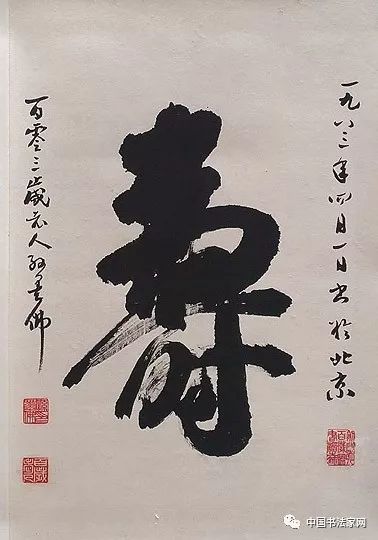 一九八三年四月一日书于北京
寿
百零三岁老人孙墨佛
中国书法家网